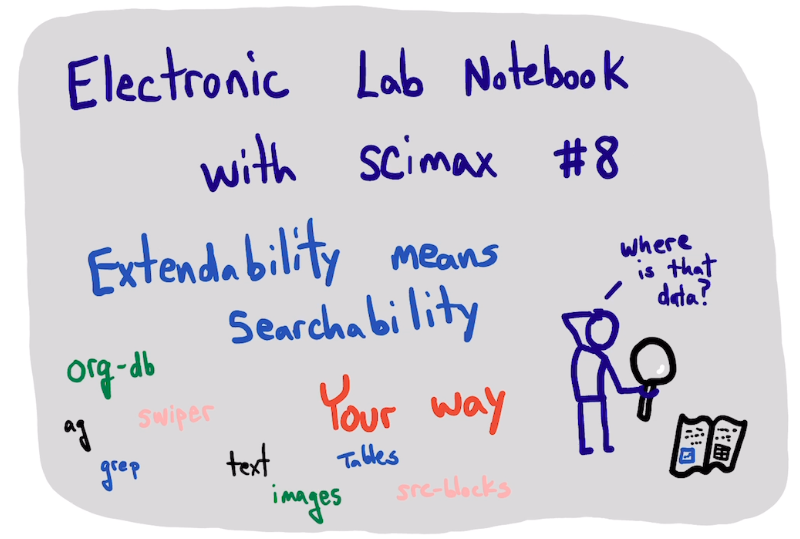 Electronic Lab Notebook
with scimax #8
Extendability means
Searchability
where
is that
data?
org-db
Your way
ag
swiper
grep
text
Tables
images
src-blocks